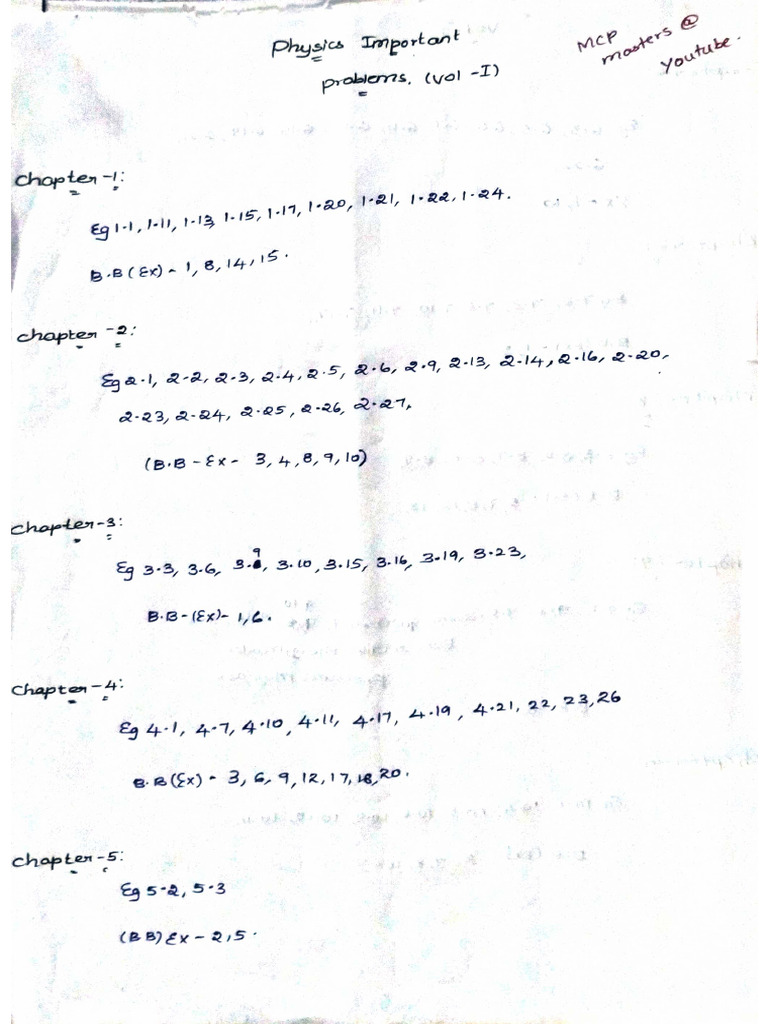 Physics Important
problems. (vol -I)
MCP
masters @
youtube.
Chapter -1:
Eg 1.1, 1.11, 1.13, 1.15, 1.17, 1.20, 1.21, 1.22, 1.24.
B.B (Ex) - 1, 8, 14, 15.
Chapter -2:
Eg 2.1, 2.2, 2.3, 2.4, 2.5, 2.6, 2.9, 2.13, 2.14, 2.16, 2.20,
2.23, 2.24, 2.25, 2.26, 2.27,
(B.B - Ex - 3, 4, 8, 9, 10)
Chapter-3:
Eg 3.3, 3.6, 3.9, 3.10, 3.15, 3.16, 3.19, 3.23,
B.B-(Ex)- 1, 6.
Chapter-4:
Eg 4.1, 4.7, 4.10, 4.11, 4.17, 4.19, 4.21, 22, 23, 26
B.B (Ex) - 3, 6, 9, 12, 17, 18, 20.
Chapter-5:
Eg 5.2, 5.3
(BB) Ex - 2, 5.